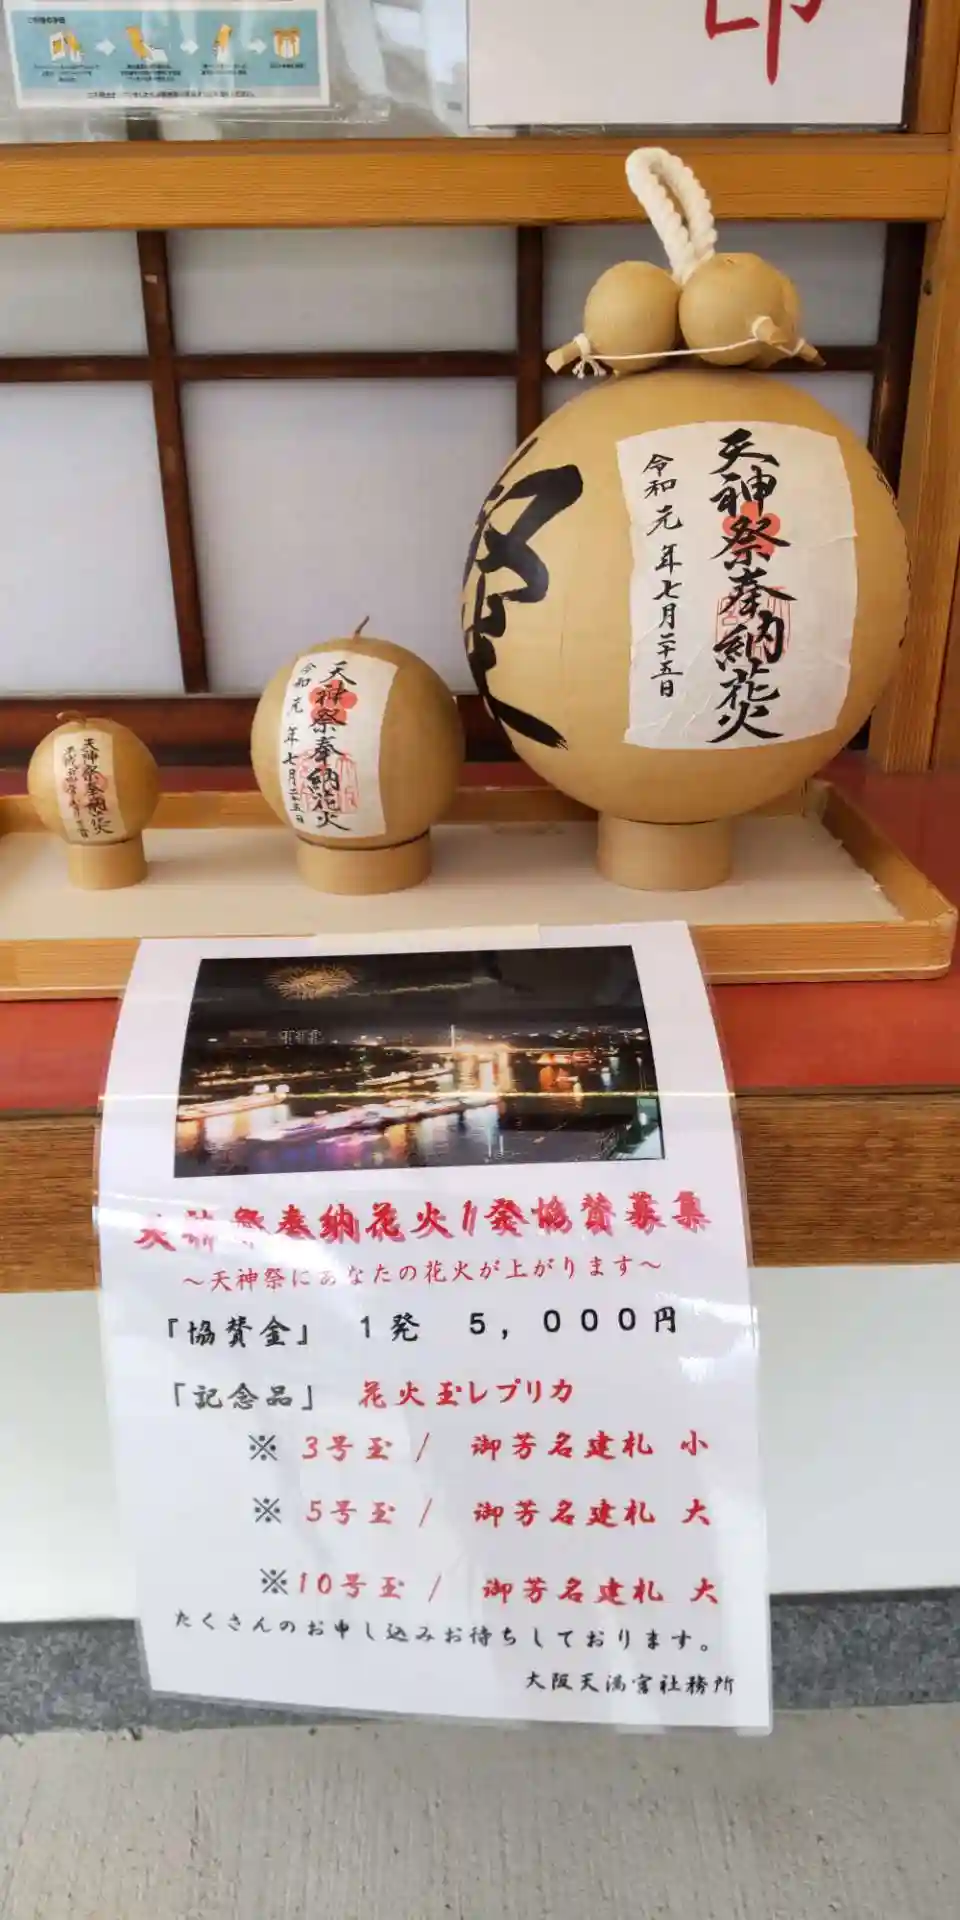 印
天神祭奉納花火
令和元年七月二十五日
天神祭奉納花火
令和元年七月二十五日
天神祭奉納花火
天神祭奉納花火1発協賛募集
～天神祭にあなたの花火が上がります～
「協賛金」 1発 5,000円
「記念品」 花火玉レプリカ
※ 3号玉 / 御芳名建札 小
※ 5号玉 / 御芳名建札 大
※10号玉 / 御芳名建札 大
たくさんのお申し込みお待ちしております。
大阪天満宮社務所